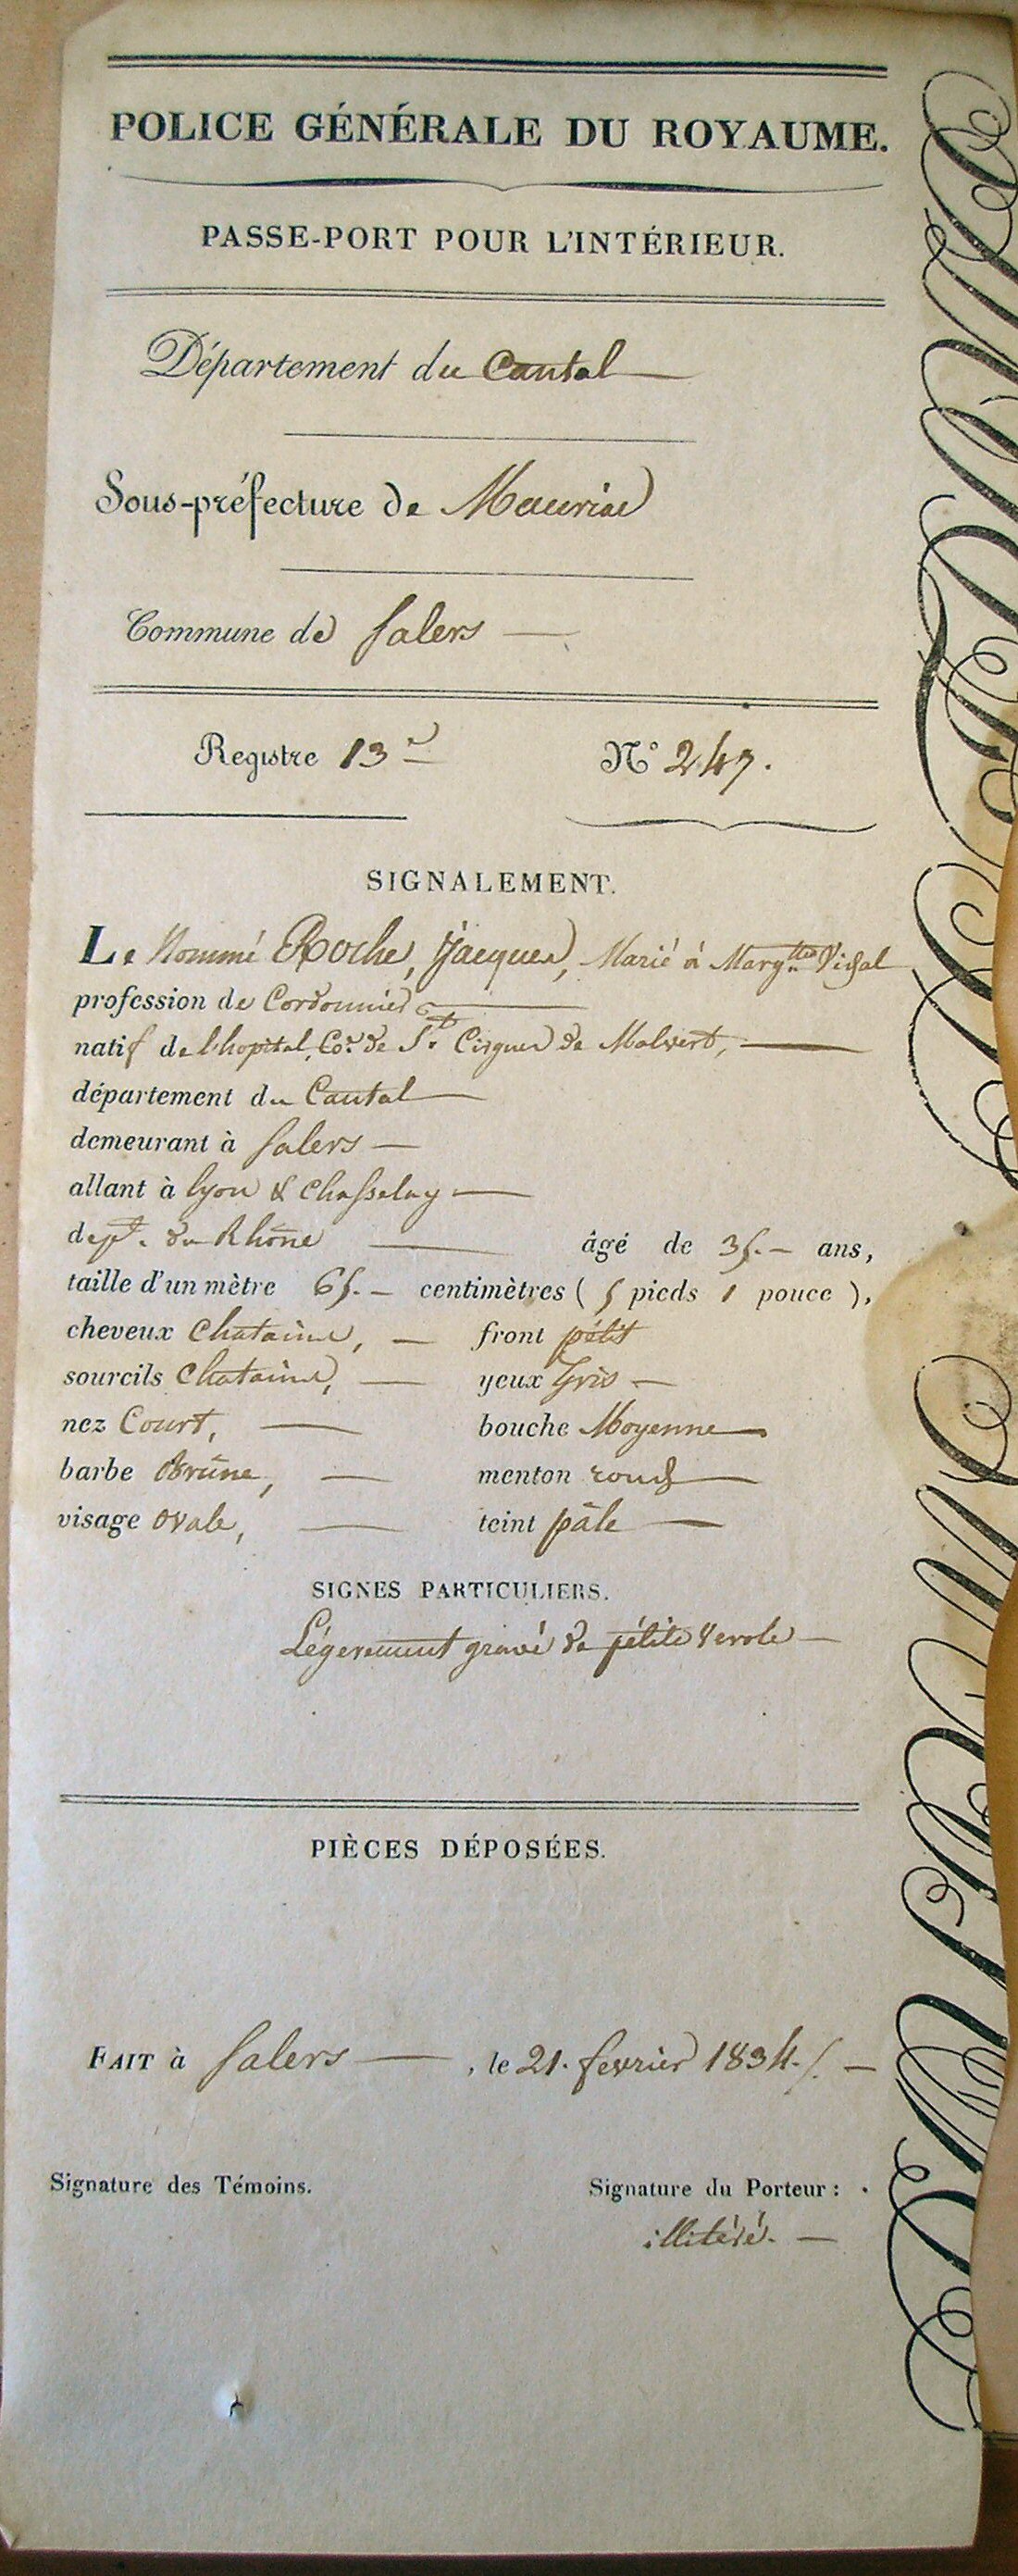 POLICE GÉNÉRALE DU ROYAUME.
PASSE-PORT POUR L'INTÉRIEUR.
Département du Cantal
Sous-préfecture de Mauriac
Commune de Salers
Registre 13e N° 247.
SIGNALEMENT.
Le Nommé Roche, Jacques, Marié à Margtte Vidal
profession de Cordonnier
natif de l'hopital, Cne de St Cirgues de Malvert,
département du Cantal
demeurant à Salers
allant à Lyon & Chasselay
dept. du Rhône âgé de 35.- ans,
taille d'un mètre 65.- centimètres ( 5 pieds 1 pouce ),
cheveux Chatains, front pétit
sourcils Chatains, yeux Gris
nez Court, bouche Moyenne
barbe Brune, menton rond
visage Ovale, teint pâle
SIGNES PARTICULIERS.
Légerement gravé de pétite Verole
PIÈCES DÉPOSÉES.
FAIT à Salers , le 21. fevrier 1834./.
Signature des Témoins. Signature du Porteur :
illitéré.